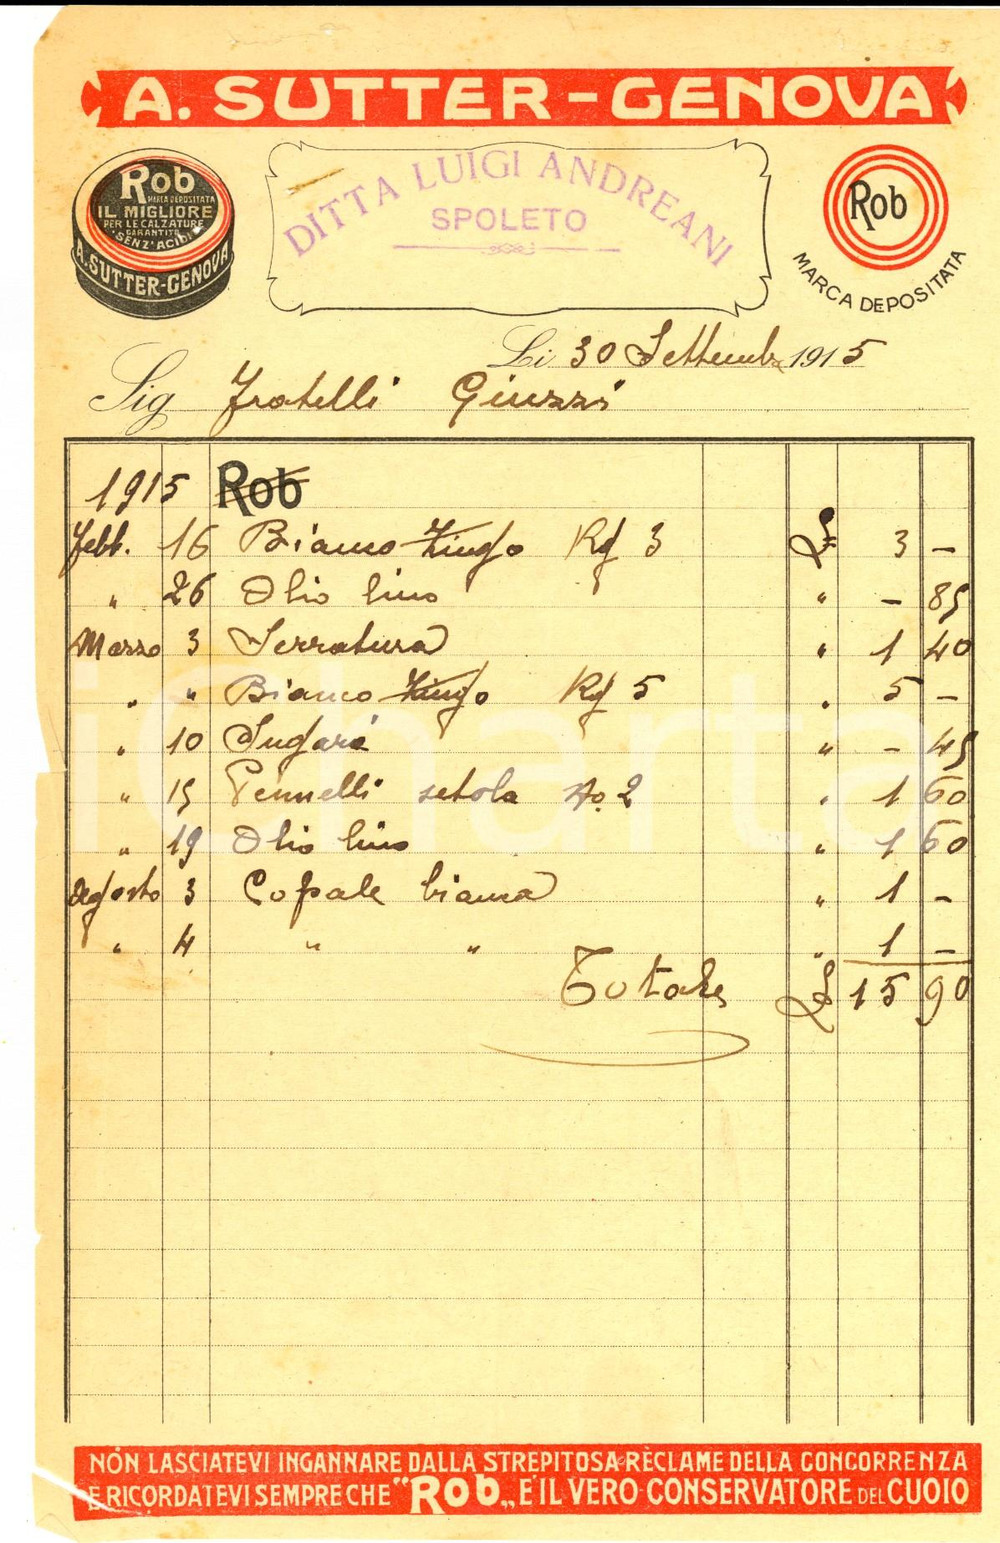 A. SUTTER - GENOVA
Rob
MARCA DEPOSITATA
IL MIGLIORE
PER LE CALZATURE
GARANTITO
SENZ'ACIDI
A. SUTTER-GENOVA
DITTA LUIGI ANDREANI
SPOLETO
Rob
MARCA DEPOSITATA
Li 30 Settembre 1915
Sig Fratelli Giuzzi
1915 Rob
Febb. 16 Bianco Zingo Kg 3 £ 3 —
" 26 Olio lino " — 85
Marzo 3 Serratura " 1 40
" " Bianco Zingo Kg 5 " 5 —
" 10 " — 45
" 15 Pennelli setola No. 2 " 1 60
" 19 Olio lino " 1 60
Agosto 3 Copale bianca " 1 —
" 4 " " " 1 —
Totale £ 15 90
iCharta
NON LASCIATEVI INGANNARE DALLA STREPITOSA RÈCLAME DELLA CONCORRENZA
E RICORDATEVI SEMPRE CHE "Rob„ E'IL VERO CONSERVATORE DEL CUOIO